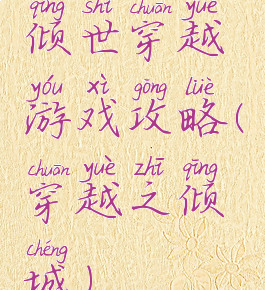 qīng shì chuān yuè
倾世穿越
yóu xì gōng lüè
游戏攻略(
chuān yuè zhī qīng
穿越之倾
chéng
城)